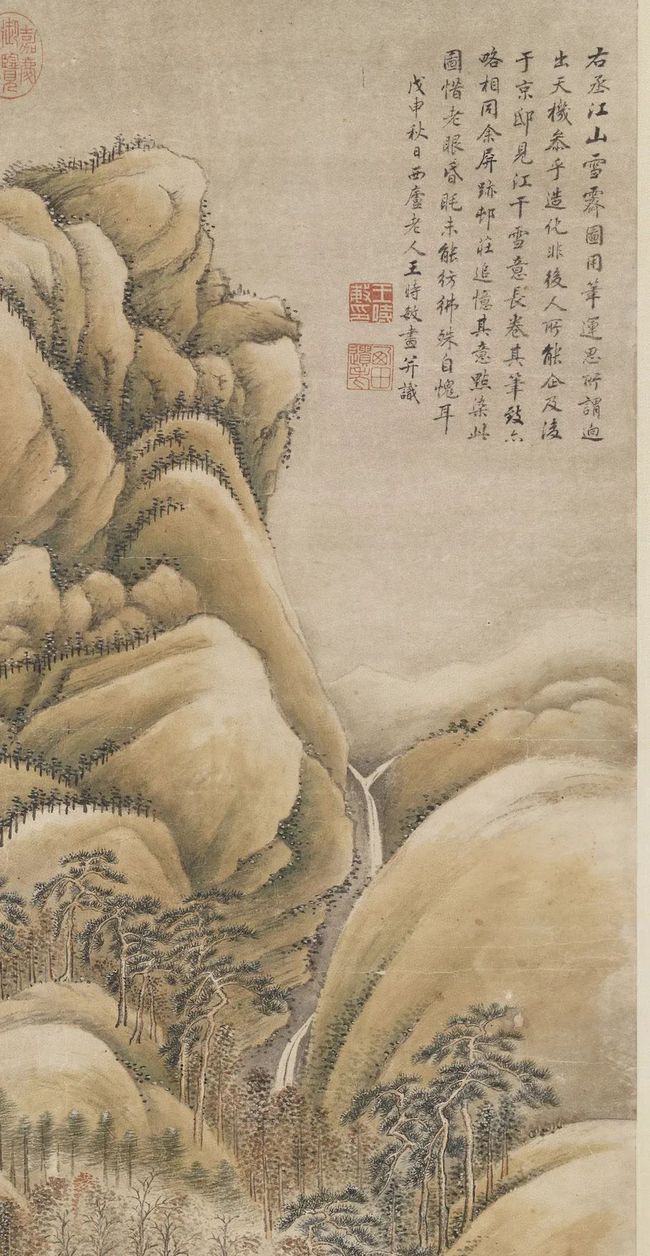 右丞江山雪霽圖用筆運思所謂迥
出天機參乎造化非後人所能企及淩
于京邸見江干雪意長卷其筆致亦
略相同余屏跡邨莊追憶其意點染此
圖惜老眼昏眊未能彷彿殊自愧耳
戊申秋日西廬老人王時敏畫并識
嘉慶
御覽